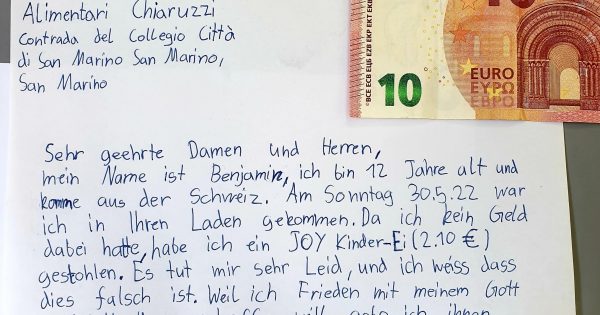 Alimentari Chiaruzzi
Contrada del Collegio Città
di San Marino San Marino,
San Marino
10
©BCE ECB ЕЦБ EZB EKP EKT EKB
10
EURO
ΕΥΡΩ
ЕВРО
Sehr geehrte Damen und Herren,
mein Name ist Benjamin, ich bin 12 Jahre alt und
komme aus der Schweiz. Am Sonntag 30.5.22 war
ich in Ihren Laden gekommen. Da ich kein Geld
dabei hatte, habe ich ein JOY Kinder-Ei (2.10 €)
gestohlen. Es tut mir sehr Leid, und ich weiss dass
dies falsch ist. Weil ich Frieden mit meinem Gott